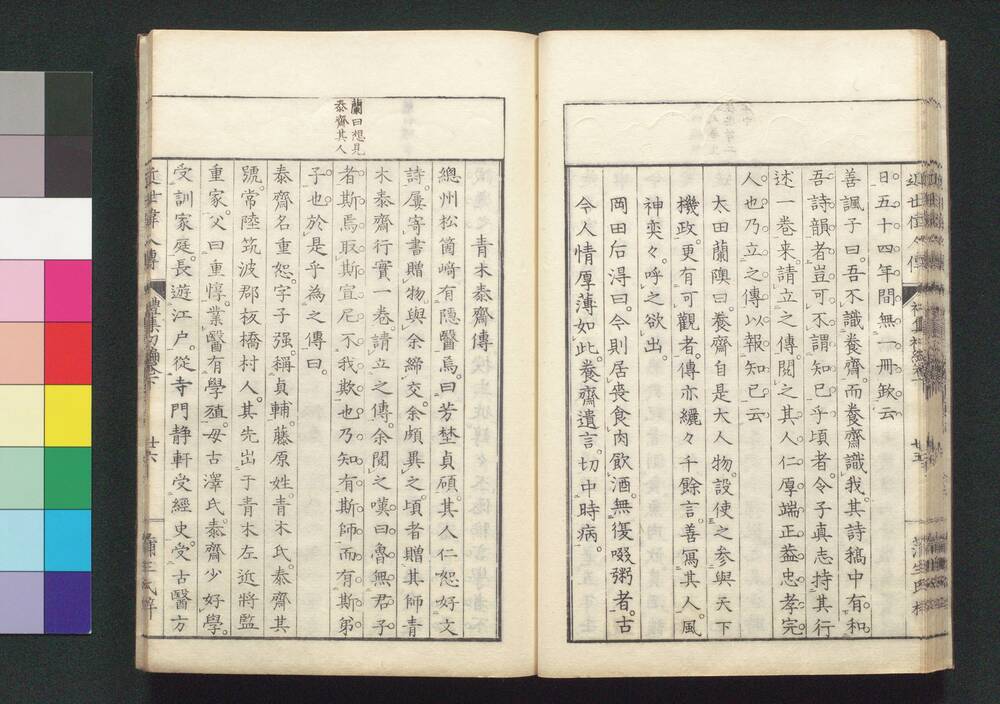 日。五十四年間。無一冊欵云
善諷子曰。吾不識養齋。而養齋識我。其詩稿中。有和
吾詩韻者。豈可不謂知已乎。頃者。令子真志持其行
述一巻来。請立之傳。閲之。其人仁厚端正。葢忠孝完
人也。乃立之傳以報知已云
太田蘭隩曰。養齋自是大人物。設使之参與天下
機政。更有可觀者。傳亦纚々千餘言。善寫其人。風
神奕々。呼之欲出。
岡田后淂曰。今則居喪食肉飲酒。無復啜粥者。古
今人情厚薄如此。養齋遺言。切中時病。
蘭曰想見
泰齋其人
青木泰齋傳
總州松箇﨑有隠醫焉。曰芳埜貞碩。其人仁恕好文
詩。屢寄書贈物。與余締交。余頗異之。頃者贈其師青
木泰齋行實一巻。請立之傳。余閲之嘆曰。魯無君子
者。斯焉取斯。宣尼不我欺也。乃知有斯師而有斯弟
子也。於是乎為之傳曰。
泰齋名重恕。字子强。稱貞輔。藤原姓青木氏。泰齋其
號。常陸筑波郡板橋村人。其先出于青木左近將監
重家。父曰重惇。業醫有學殖。母古澤氏。泰齋少好學。
受訓家庭。長遊江戸。從寺門静軒受經史。受古醫方
近世偉人傳
廿六